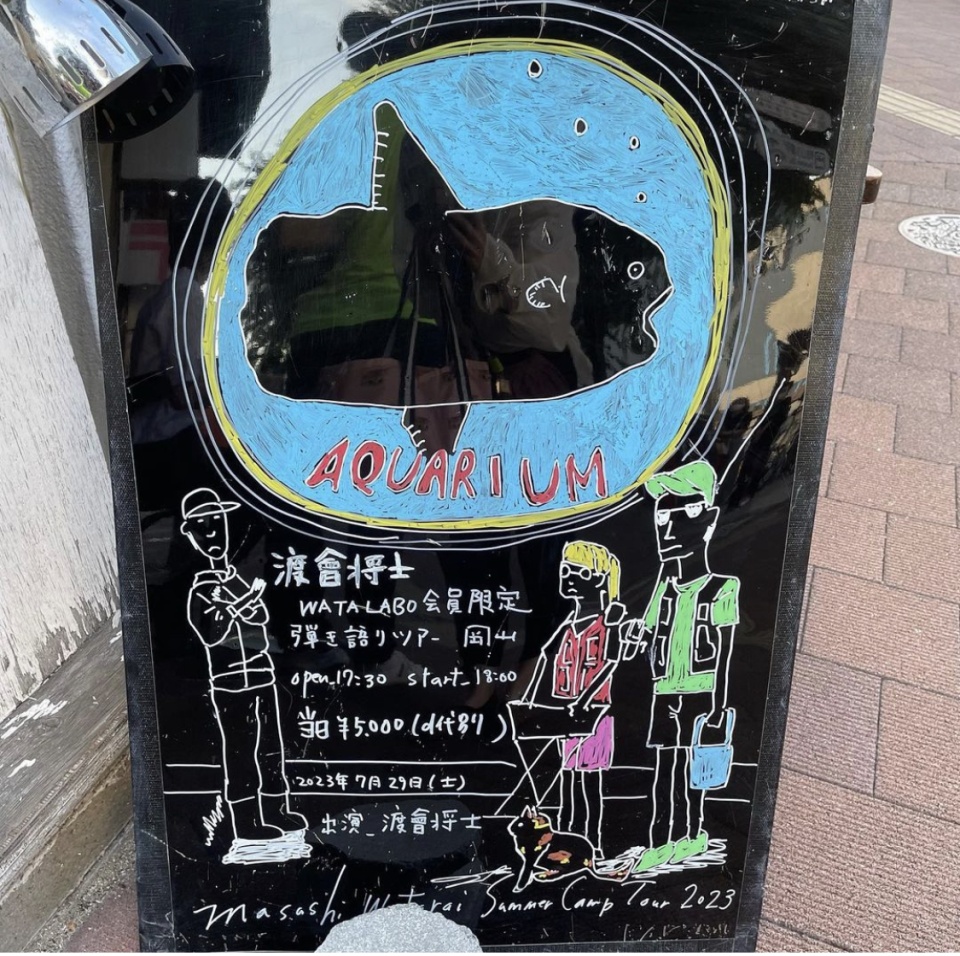 AQUARIUM
渡會将士
WATALABO会員限定
弾き語りツアー 岡山
open_17:30 start_18:00
当日¥5.000(d代別)
2023年7月29日(土)
出演_渡會将士
Masashi Watarai Summer Camp Tour 2023